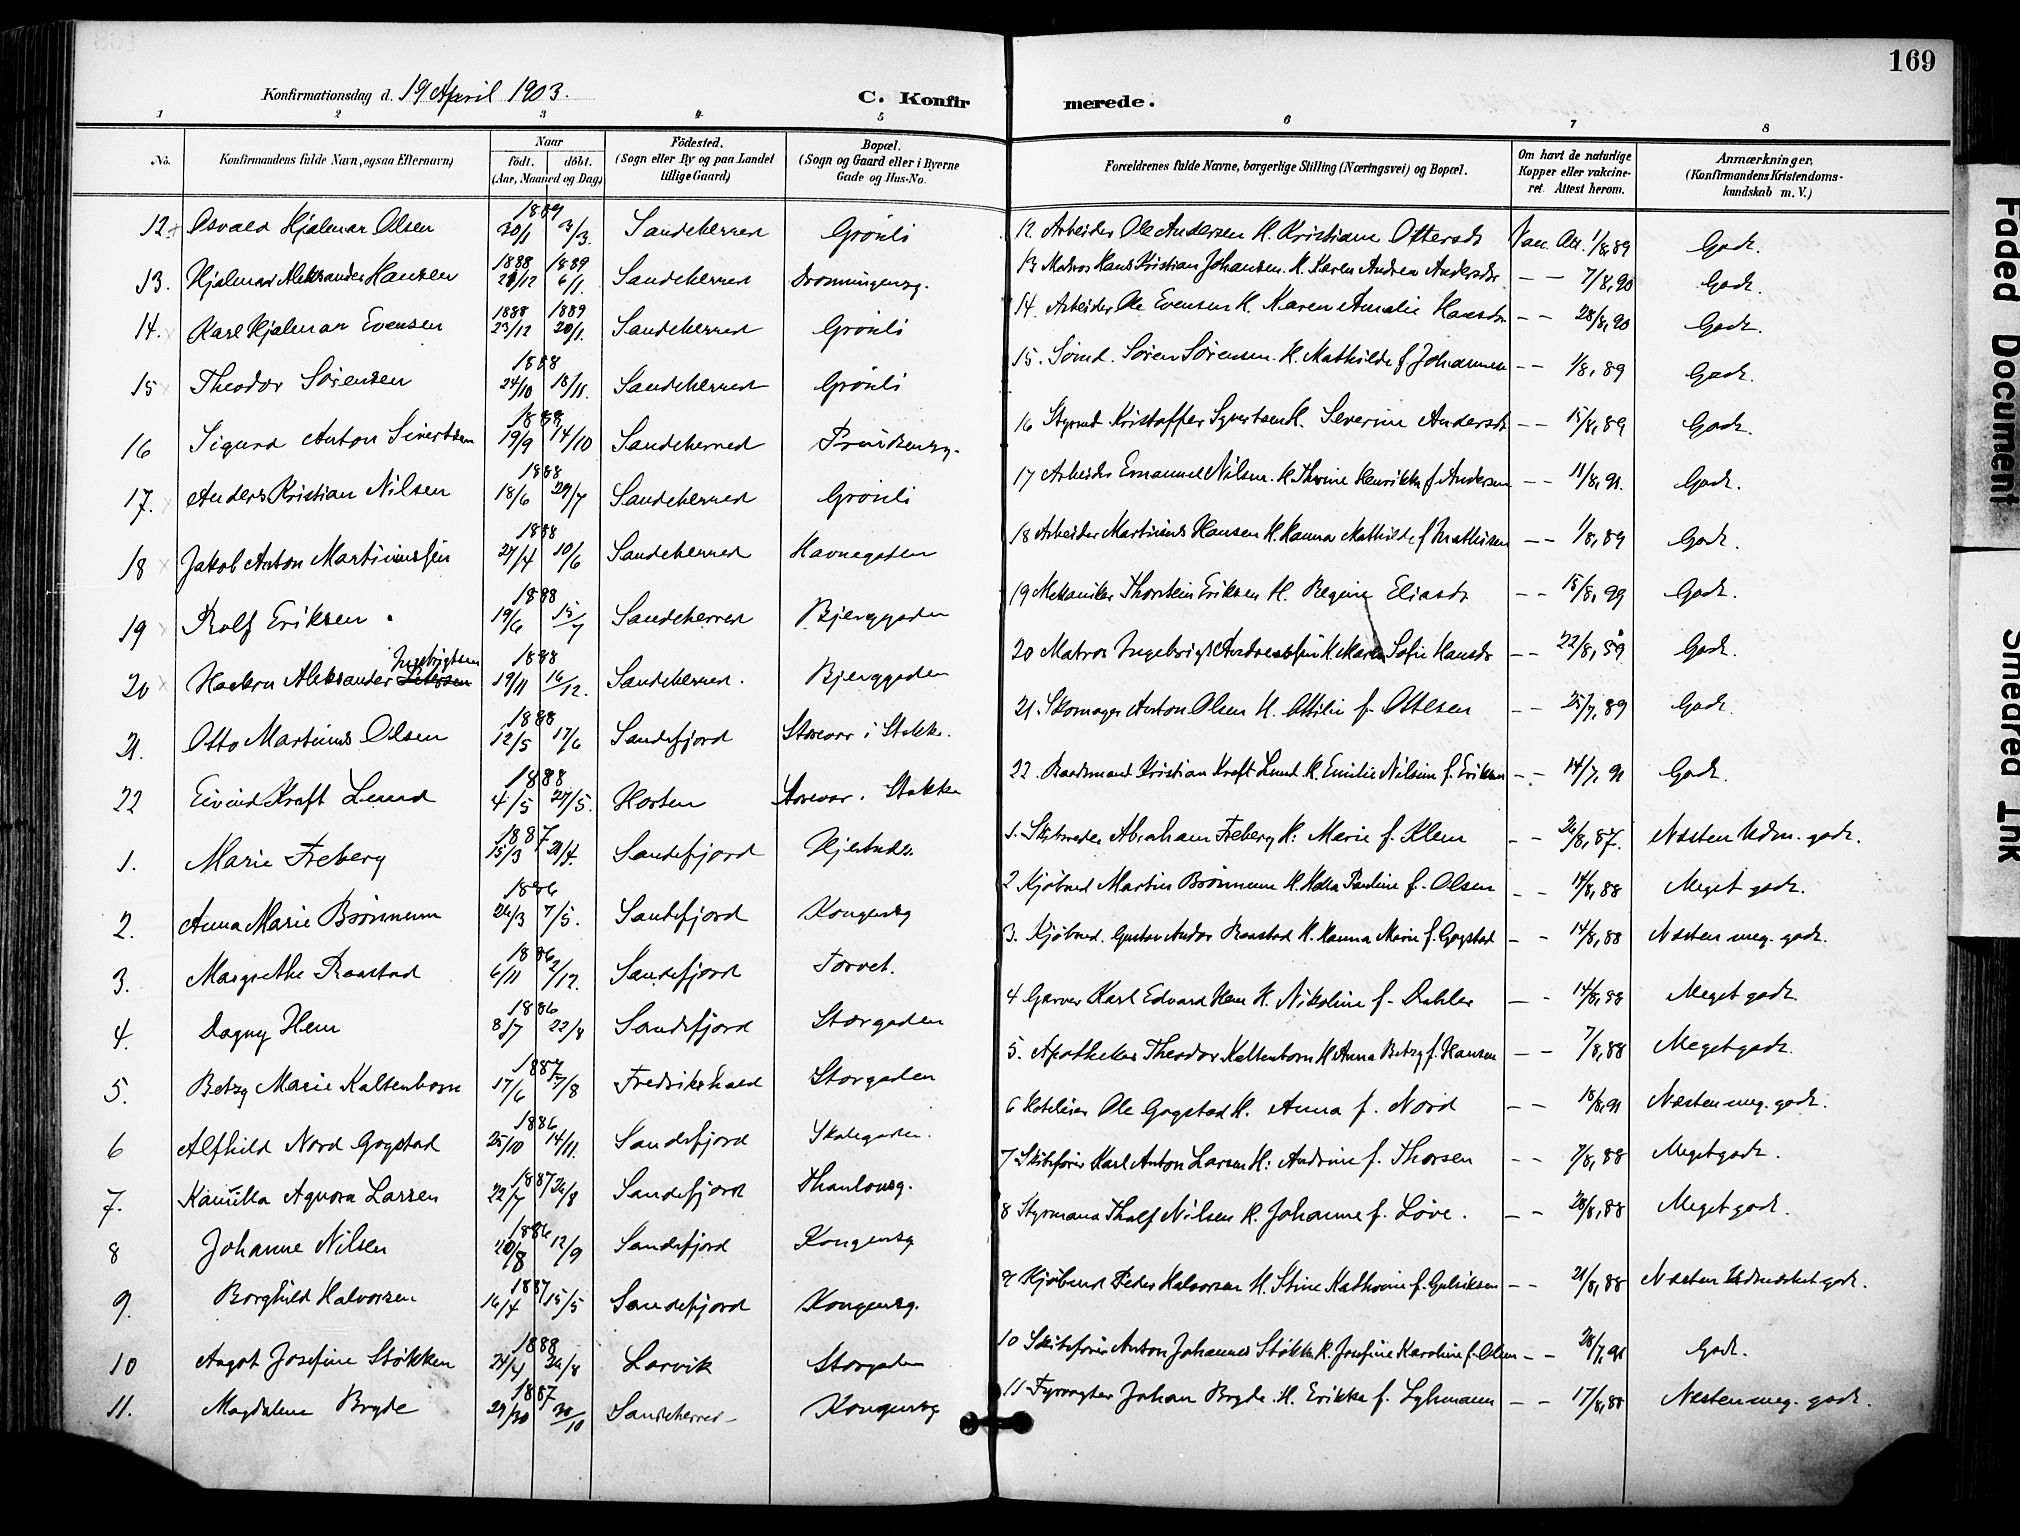 169
Konfirmationsdag d. 19 April 1903.
C. Konfirmerede.
1 2 3 4 5 6 7 8
No. Konfirmandens fulde Navn, ogsaa Efternavn) Naar født. døbt. (Aar, Maaned og Dag) Fødested. (Sogn eller By og paa Landet tillige Gaard) Bopæl. (Sogn og Gaard eller i Byerne Gade og Hus-No. Forældrenes fulde Navne, borgerlige Stilling (Næringsvei) og Bopæl. Om havt de naturlige Kopper eller vakcineret. Attest herom. Anmærkninger. (Konfirmandens Kristendomskundskab m. V.)
12. Osvald Hjalmar Olsen 1889 30/1 3/3. Sandeherred Grönli 12 Arbeider Ole Andersen H. Kristiane Ottersdr Vac. Att. 1/8, 89 Godt.
13. Hjalmar Aleksander Hansen 1888 21/12 1889 6/1. Sandeherred Dronningensg. 13 Matros Hans Kristian Johansen. H. Karen Andrea Andersdr — — 7/8, 90 Godt.
14. Karl Hjalmar Evensen 1888 23/12 1889 20/1. Sandeherred Grönli 14. Arbeider Ole Evensen H. Karen Amalie Hansdr — — 28/8, 90 Godt.
15 Theodor Sørensen 1888 24/10 18/11. Sandeherred Grönli 15. Sömd. Sören Sörensen. H. Mathilde f. Johannesen — — 1/8, 89 Godt.
16 Sigurd Anton Sivertsen 1888 19/9 14/10 Sandeherred Prindsensg. 16 Styrmd Kristoffer Syvertsen H. Severine Andersdr — — 15/8, 89 Godt.
17. Anders Kristian Nilsen 1888 18/6 29/7 Sandeherred Grönli 17 Arbeider Emanuel Nilsen. H. Thrine Henrikke f. Andersen — — 11/8, 91. Godt.
18 Jakob Anton Martiniussen 1888 27/4 10/6 Sandeherred Havnegaden 18 Arbeider Martinius Hansen H. Hanna Mathilde f Mathisen — — 1/8, 89 Godt.
19 Rolf Eriksen. 1888 19/6 15/7 Sandeherred Bjerggaden 19 Mekaniker Thorstein Eriksen H. Regine Eliasdr — — 15/8, 99 Godt.
20 Haakon Aleksander Ingebrigtsen 1888 19/11 16/12. Sandeherred. Bjerggaden 20 Matros Ingebrigt Andreassen H. Maren Sofie Hansdr — — 22/8, 89 Godt.
21. Otto Martinius Olsen 1888 12/5 17/6 Sandefjord Storevar i Stokke. 21. Skomager Anton Olsen H. Ottilie f. Ottesen — — 25/7, 89 Godt.
22 Eivind Kraft Lund 1888 4/5 27/5. Horten Storevar. Stokke 22. Baadsmand Kristian Kraft Lund H. Emilie Nilsine f. Eriksen — — 14/7, 91 Godt.
1. Marie Freberg 1887 15/3 21/4. Sandefjord Hjertnes. 1. Skibsreder Abraham Freberg H. Marie f. Klem — — 26/8, 87. Næsten Udm. godt.
2. Anna Marie Brönnum 1886 26/3 7/5. Sandefjord Kongensg 2 Kjöbmd Martin Brönnum H. Pauline f. Olsen — — 14/8, 88 Meget godt.
3. Margrethe Raastad 1886 6/11 2/12. Sandefjord Torvet. 3. Kjöbmd. Gustav Andor Raastad H. Hanna Marie f. Gogstad — — 14/8, 88 Næsten meg. godt.
4. Dagny Hem 1886 8/7 22/8 Sandefjord Storgaden 4 Garver Karl Edvard Hem H. Nikoline f. Dahler — — 14/8, 88 Meget godt.
5. Betzy Marie Kaltenborn 1887 17/6 7/8 Fredrikshald Storgaden 5. Apotheker Theodor Kaltenborn H Anna Betzy f. Hansen — — 7/8, 88 Meget godt.
6 Alfhild Nord Gogstad 1886 25/10 14/11. Sandefjord Skolegaden. 6 Hoteleier Ole Gogstad H. Anna f. Nord — — 18/8, 91 Næsten meg. godt.
7. Kamilla Agnora Larsen 1887 22/7 26/8 Sandefjord Thaulowsg. 7 Skibsförer Karl Anton Larsen H. Andrine f. Thorsen — — 7/8, 88 Meget godt.
8 Johanne Nilsen 1886 20/8 12/9 Sandefjord Kongensg 8 Styrmand Thalf Nilsen H. Johanne f. Löve. — — 28/8, 88 Meget godt.
9. Borghild Halvorsen 1887 16/4 15/5 Sandefjord Kongensg. 9 Kjöbmd Peder Halvorsen H. Stine Kathrine f. Gulliksen — — 21/8, 88 Næsten Udmærket godt.
10 Aagot Josefine Stökken 1888 24/4 26/8 Larvik Storgaden 10 Skibsförer Anton Johannes Stökken H. Josefine Karoline f. Olsen — — 28/7, 91 Godt.
11. Magdalene Bryde 1887 29/30 30/10 Sandeherred Kongensg 11 Fyrvogter Johan Bryde. H. Erikke f. Lyhmann — — 17/8, 88 Næsten meg. godt.
Faded Document
Smeared Ink